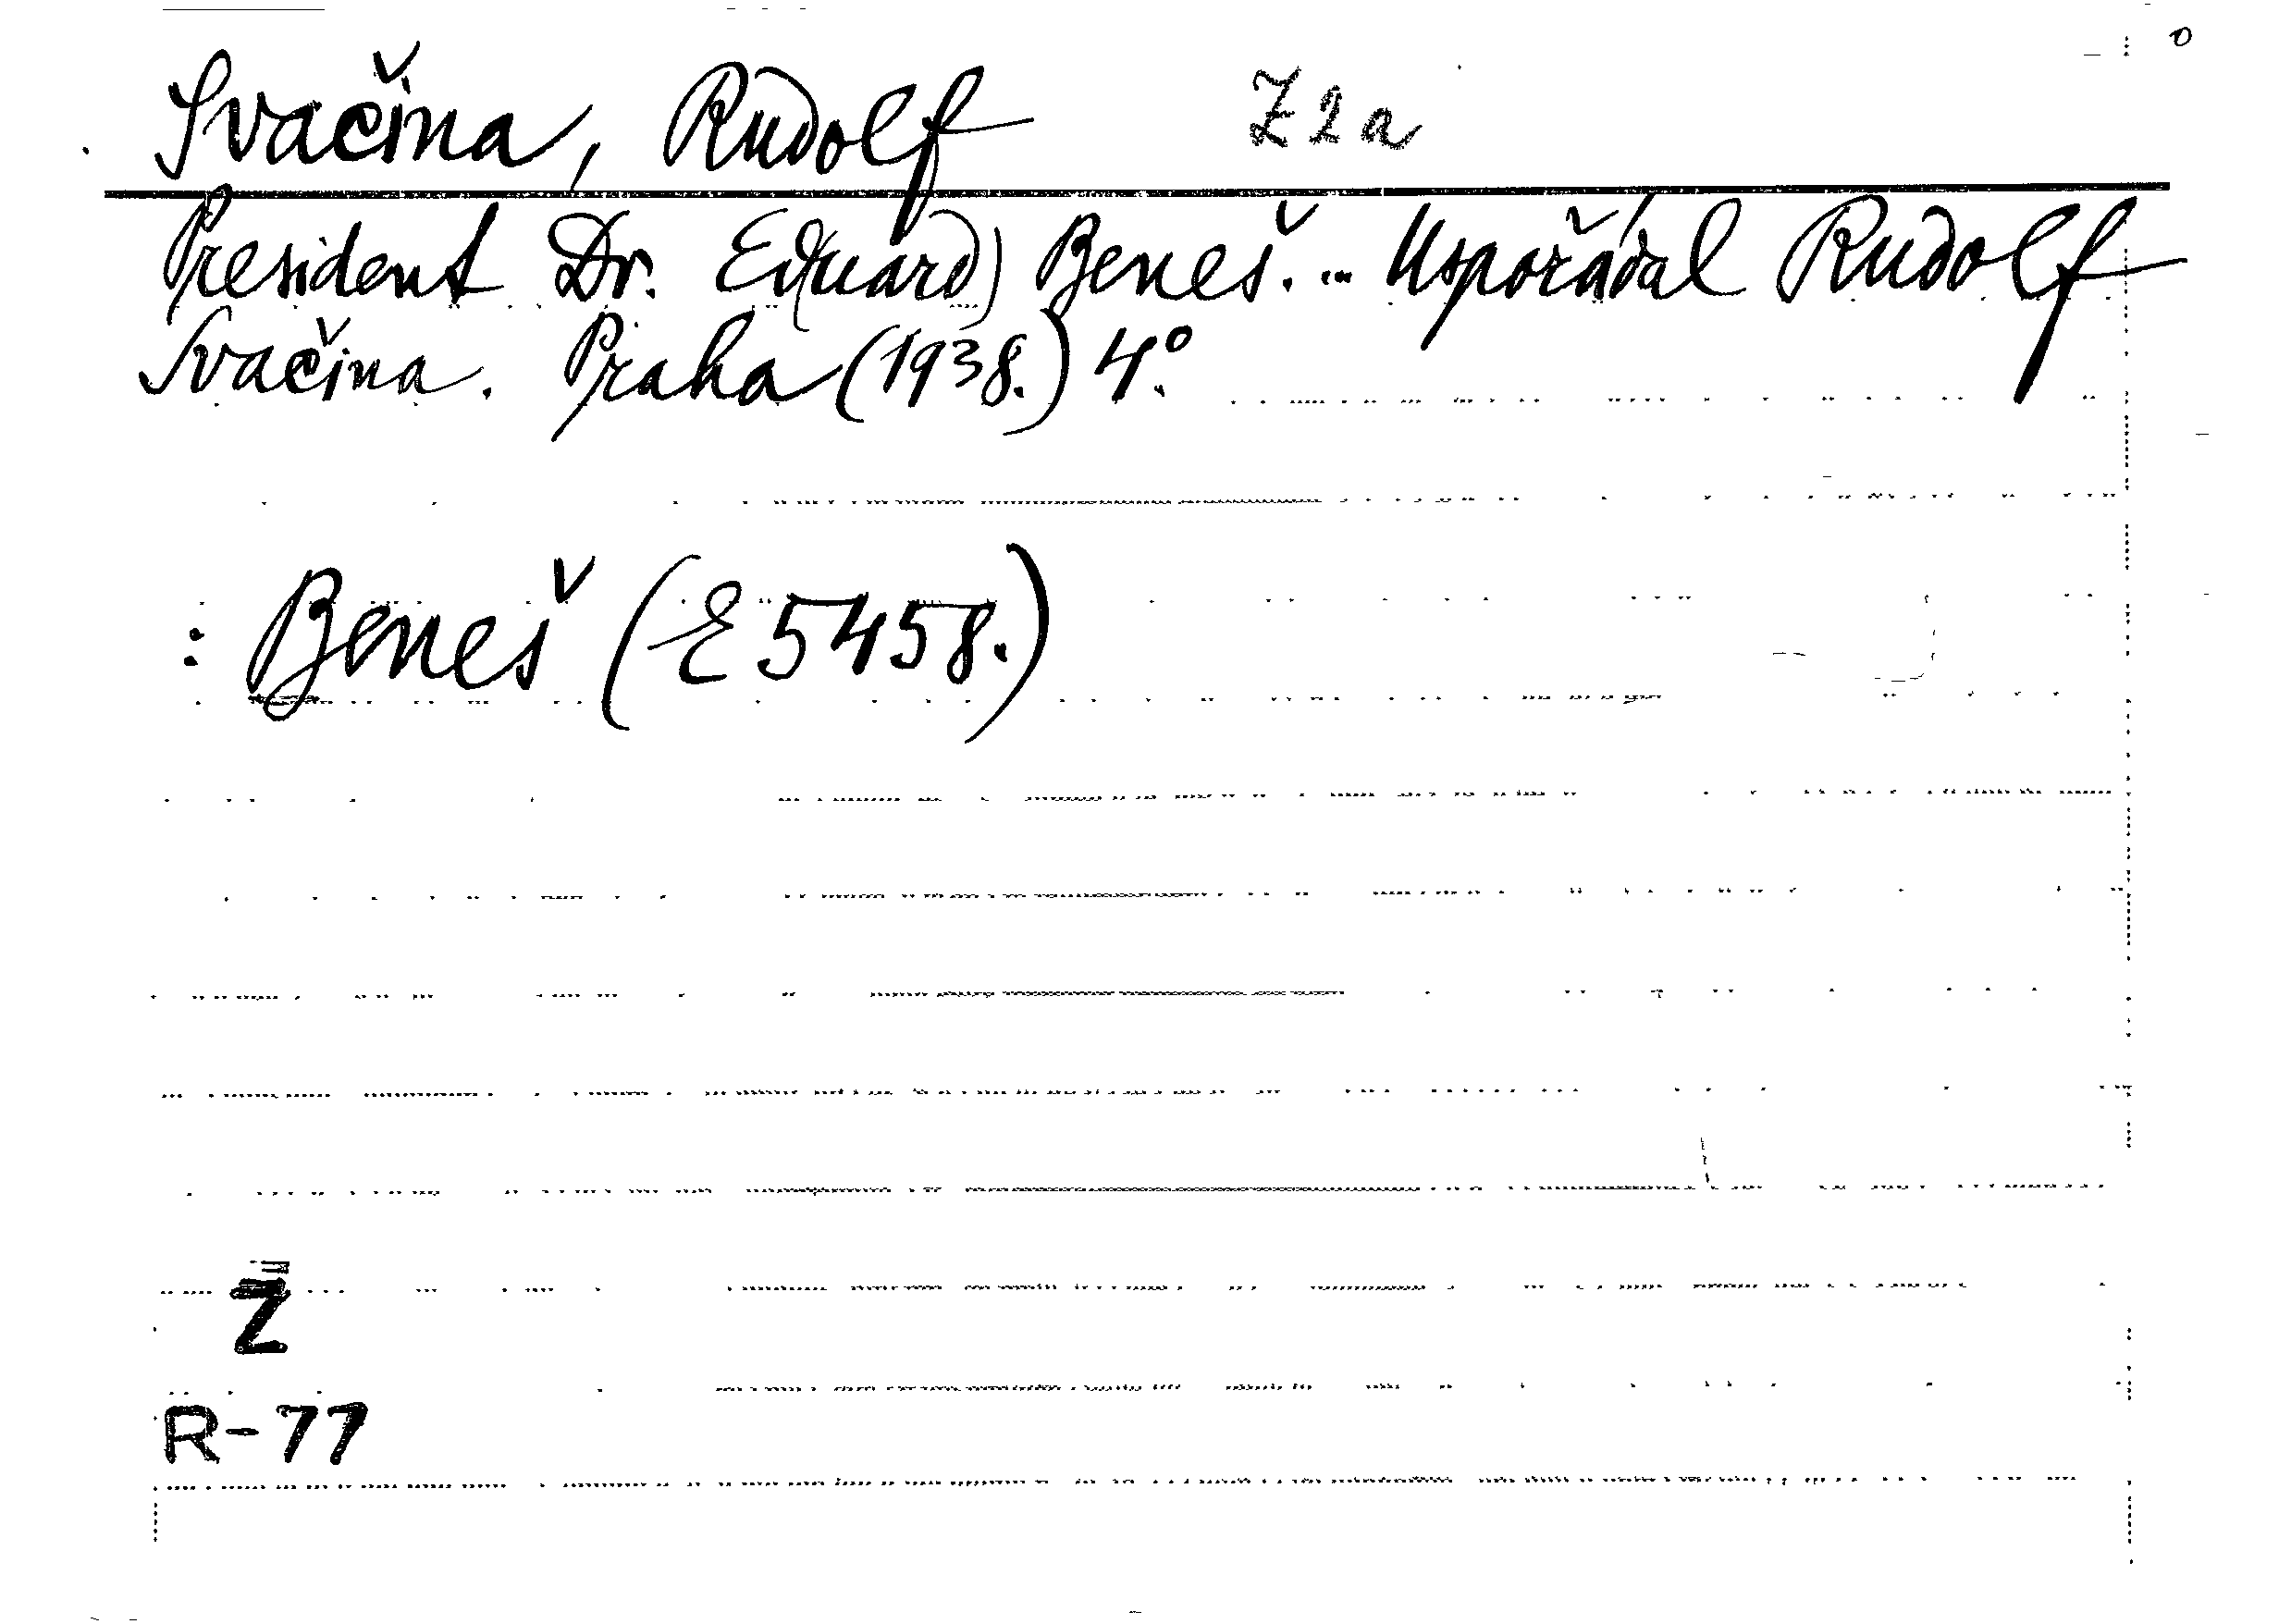 Svačina, Rudolf Z2a
President Dr. Ed(uard) Beneš. ... Uspořádal Rudolf
Svačina. Praha (1938.) 4°.
: Beneš (E 5458.)
Z
R-77